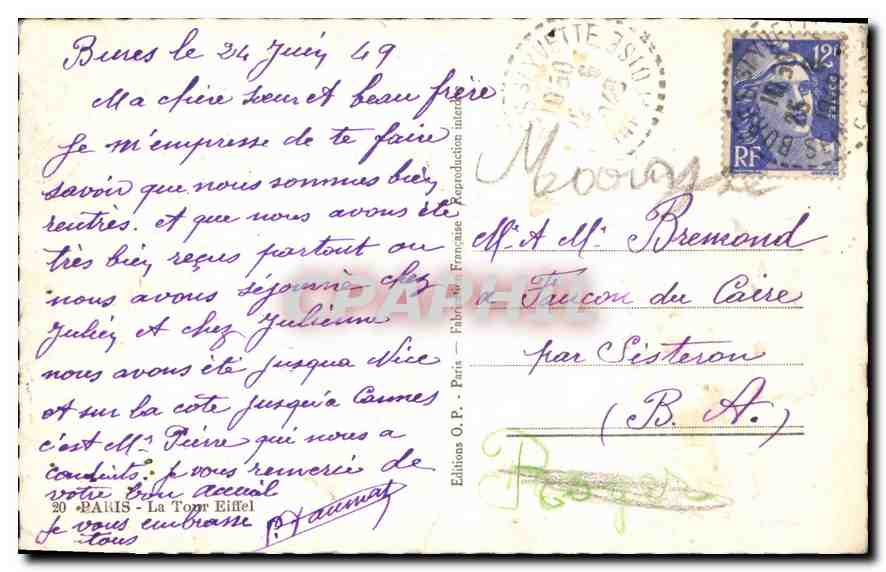 Bures le 24 Juin 49
Ma chère soeur et beau frère
Je m'empresse de te faire
savoir que nous sommes bien
rentrés. et que nous avons été
très bien reçus partout ou
nous avons séjourné chez
Julien et chez Julienne
nous avons été jusqua Nice
et sur la cote jusqu'a Cannes
c'est Mr Pierre qui nous a
conduits. je vous remercie de
votre bon accueil
20 PARIS - La Tour Eiffel
je vous embrasse
tous
Editions O. P. - Paris — Fabrication Française - Reproduction interdite
Mr et Me Bremond
a Faucon du Caire
par Sisteron
(B. A.)
12F
POSTES
RF
CPAPHIL